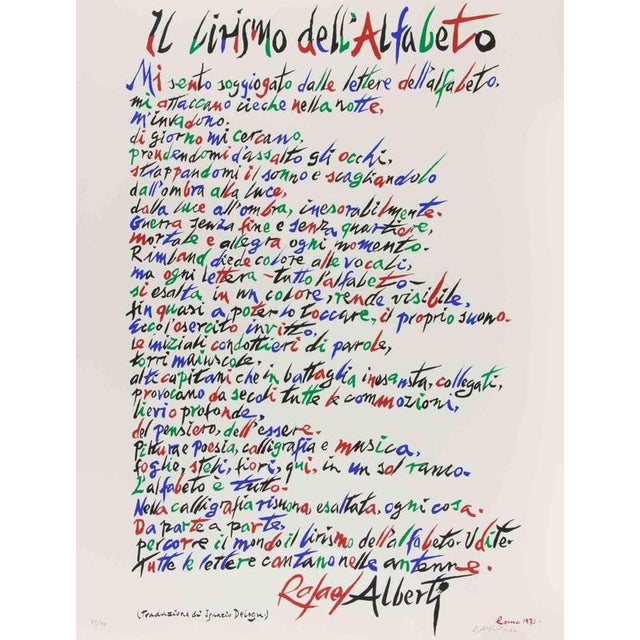 Il lirismo dell'Alfabeto
Mi sento soggiogato dalle lettere dell'alfabeto,
mi attaccano cieche nella notte,
m'invadono,
di giorno mi cercano,
prendendomi d'assalto gli occhi,
strappandomi il sonno e scagliandolo
dall'ombra alla luce,
dalla luce all'ombra, inesorabilmente.
Guerra senza fine e senza quartiere,
mortale e allegra ogni momento.
Rimbaud diede colore alle vocali,
ma ogni lettera - tutto l'alfabeto -
si esalta in un colore, rende visibile,
fin quasi a poterlo toccare, il proprio suono.
Ecco l'esercito invitto,
le iniziali condottieri di parole,
torri maiuscole,
alti capitani che in battaglia inesausta, collegati,
provocano da secoli tutte le commozioni,
lievi o profonde,
del pensiero, dell'essere.
Pittura e poesia, calligrafia e musica,
foglie, steli, fiori, qui, in un sol ramo.
L'alfabeto è tutto.
Nella calligrafia risuona, esaltata, ogni cosa.
Da parte a parte,
percorre il mondo il lirismo dell'alfabeto. Udite.
Tutte le lettere cantano nelle antenne.
Rafael Alberti
(Traduzione di Ignazio Delogu)
Roma 1972.